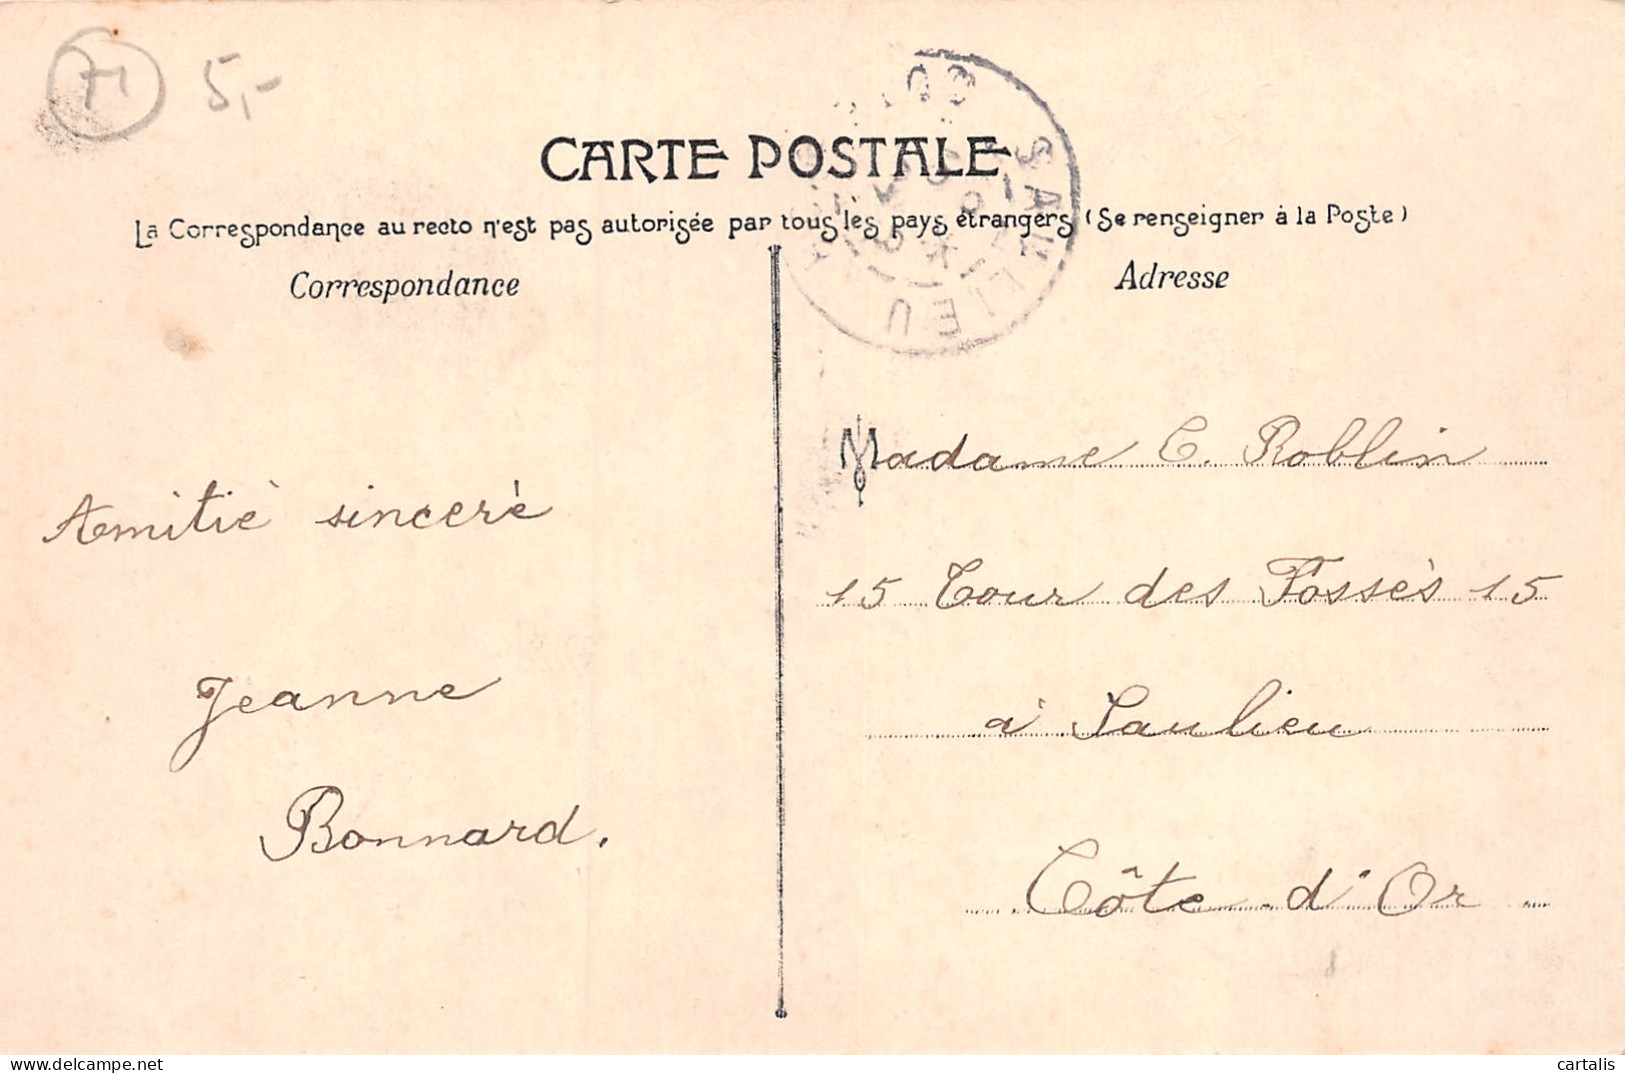 71
5,-
CARTE POSTALE
La Correspondance au recto n'est pas autorisée par tous les pays étrangers (Se renseigner à la Poste)
Correspondance
Adresse
SAULIEU
Amitié sincerè
Jeanne
Bonnard.
Madame C. Roblin
15 Cour des Fossès 15
à Saulieu
Côte d'Or
delcampe.net
cartalis